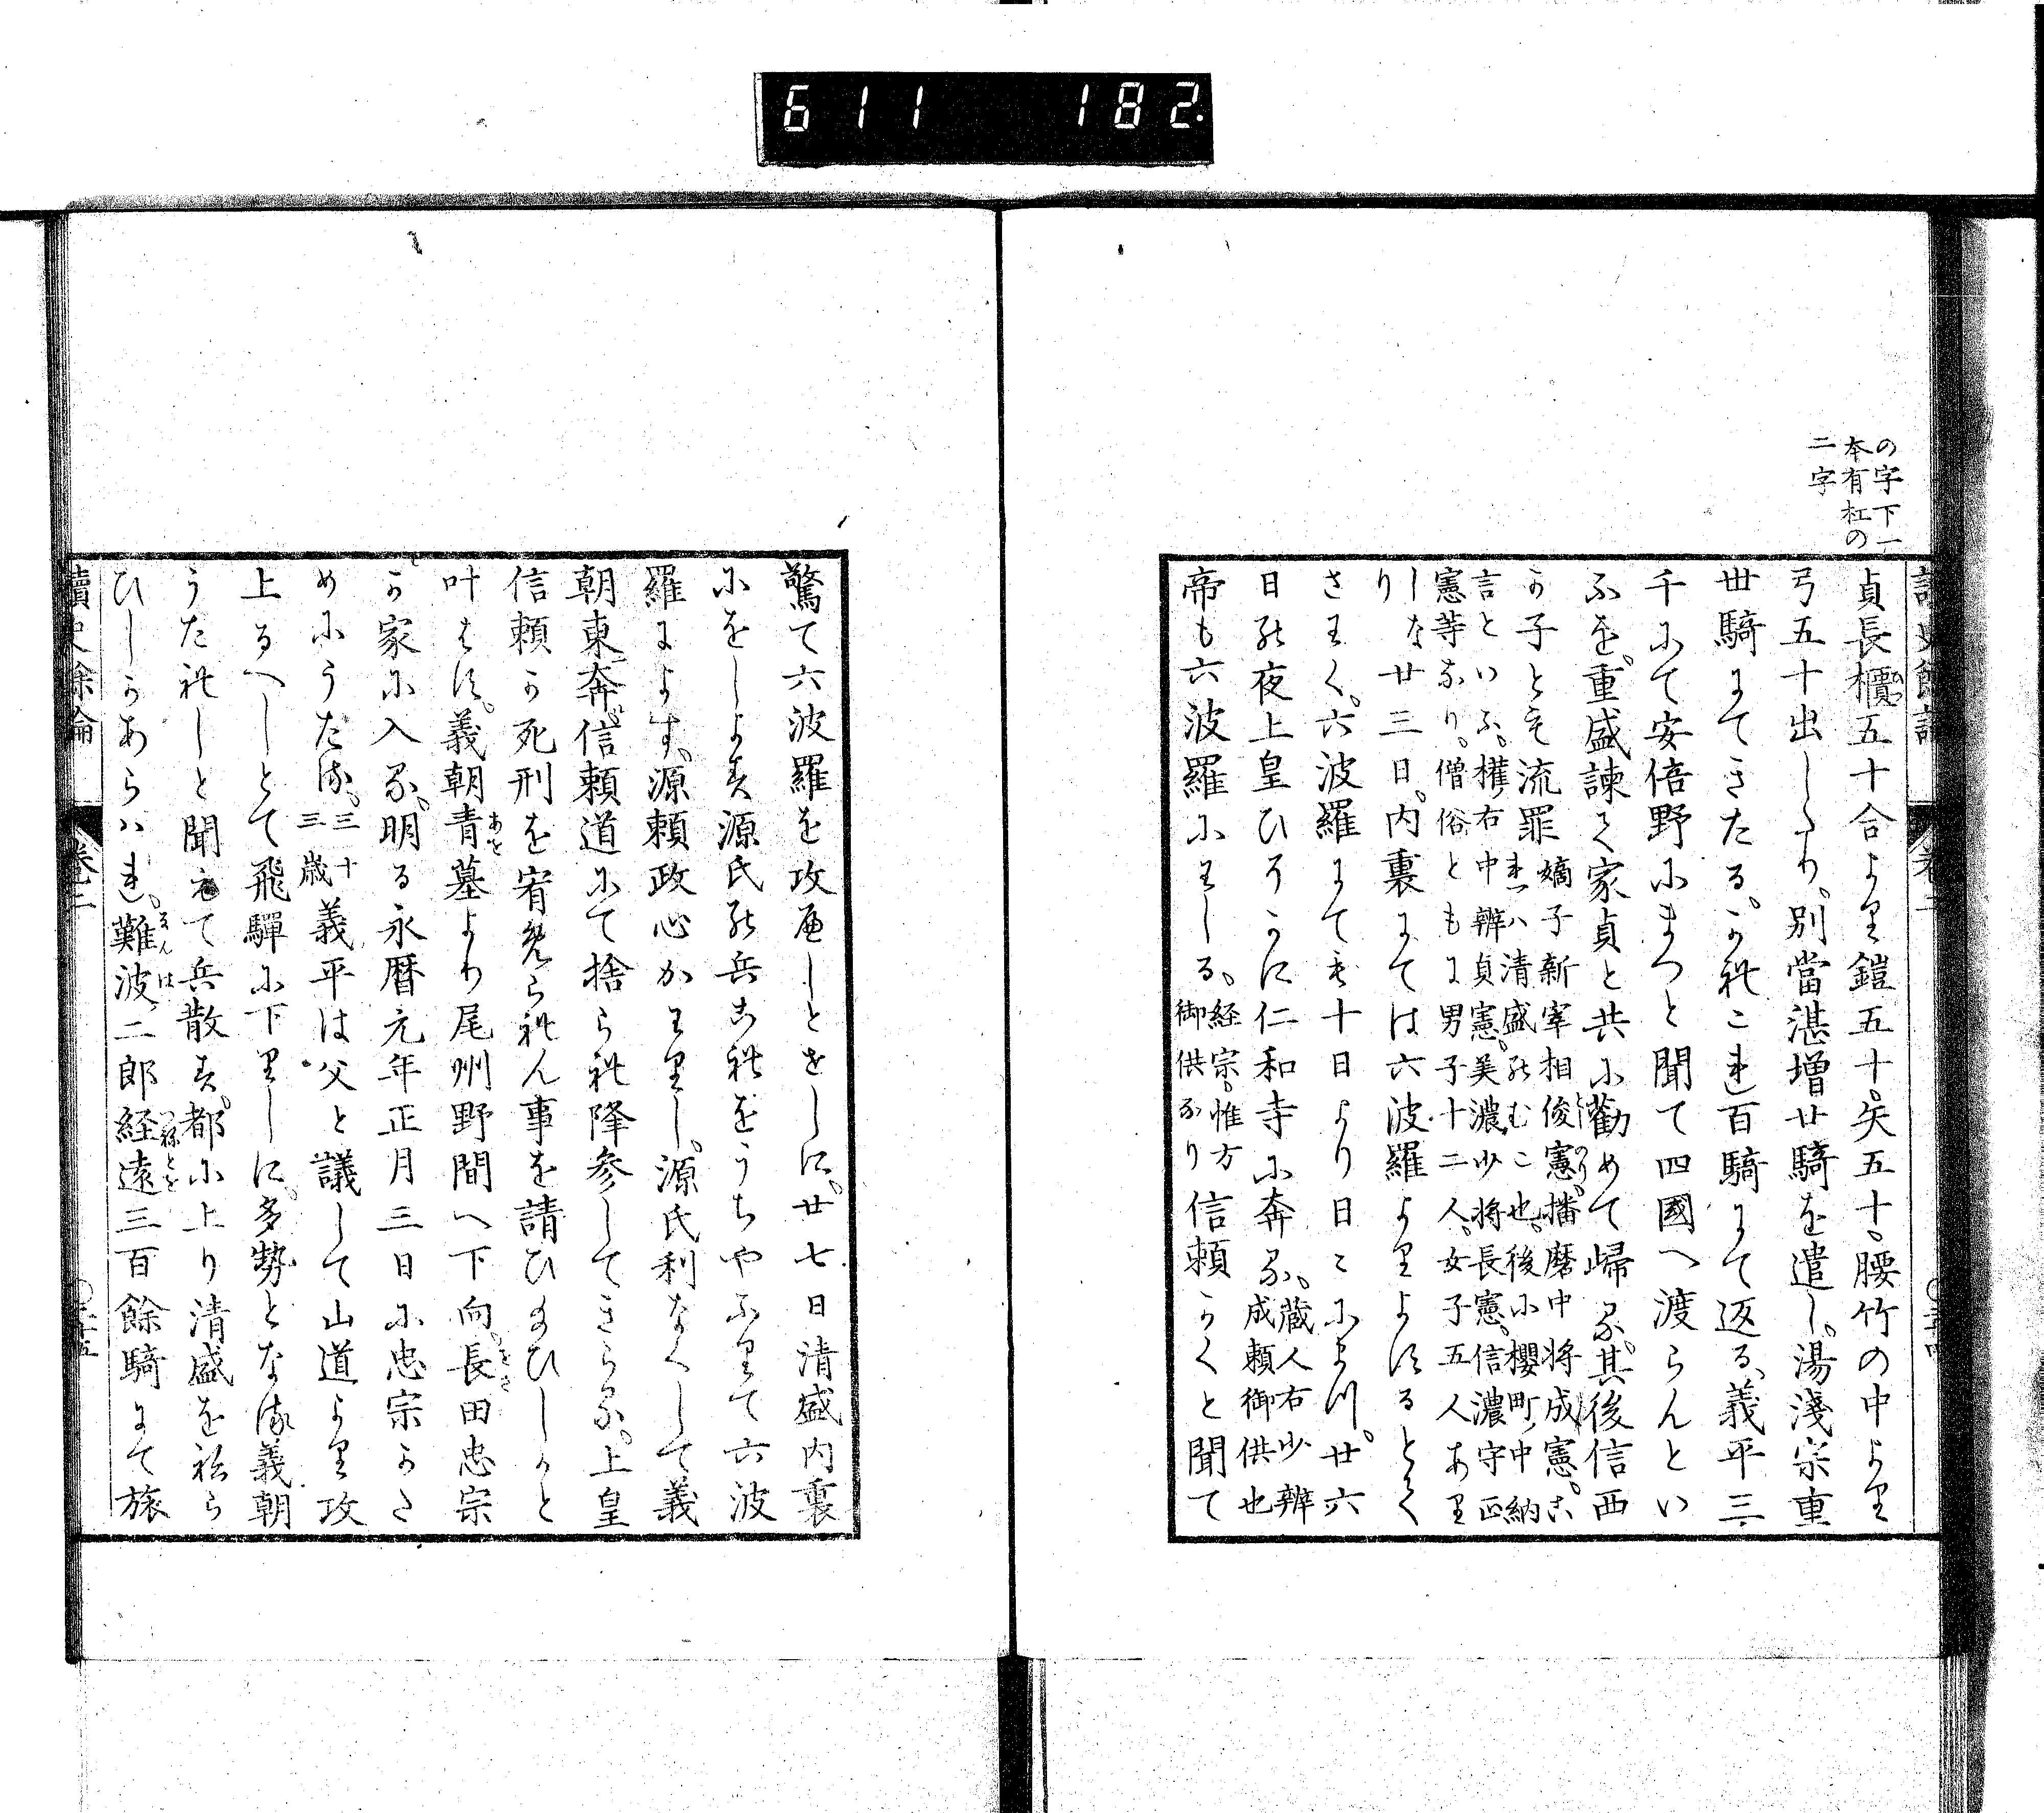 611 182
の字下一
本有杠の
二字
貞長櫃五十合より鎧五十。矢五十。腰竹の中より
弓五十出したり。別當湛増廿騎を遣し。湯淺宗重
丗騎にてきたる。かれこれ百騎にて返る、義平三
千にて安倍野にまつと聞て四國へ渡らんとい
ふを。重盛諫て家貞と共に勸めて歸る。其後信西
か子とも流罪
嫡子新宰相俊憲。播磨中将成憲。こ
れハ清盛のむこ也。後小櫻町ノ中納
言といふ、權右中辨貞憲。美濃少将長憲。信濃守
憲等なり。僧俗ともに男子十二人。女子五人あり
しな
り
廿三日。内裏にては六波羅よりよするとて
さわく。六波羅にても十日より日々にまつ。廿六
日の夜上皇ひそかに仁和寺に奔る。
蔵人右少辨
成頼御供也
帝も六波羅にわしる、
経宗。惟方
御供なり
信頼かくと聞て
驚て六波羅を攻へしとせしに。廿七日清盛内裏
にをしよす源氏の兵これをうちやふりて六波
羅によす。源頼政心かわりし。源氏利なくして義
朝東奔。信頼道にて捨られ降参してきらる。上皇
信頼か死刑を宥められん事を請ひ給ひしかと
叶はす。義朝青墓より尾州野間へ下向。長田忠宗
か家に入る。明る永暦元年正月三日に忠宗かた
めにうたる。
三十
三歳
義平は父と議して山道より攻
上るへしとて飛驒に下りしに。多勢となる義朝
うたれしと聞えて兵散す。都に上り清盛をねら
ひしかあらハれ。難波二郎経遠三百餘騎にて旅
讀史餘論
卷二